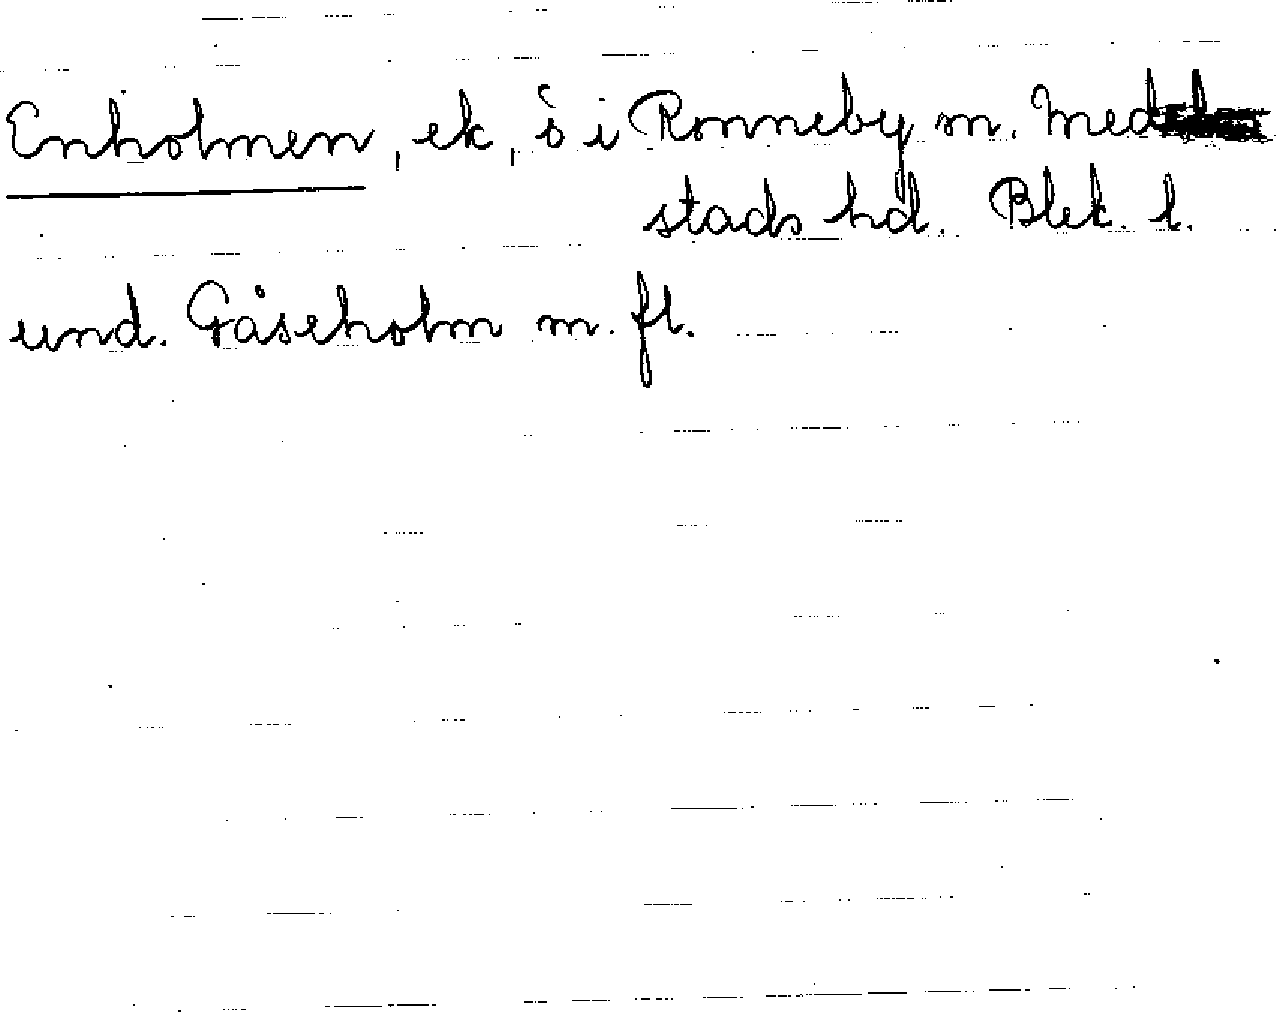 Enholmen, ek, ö i Ronneby m. Med
stads hd. Blek. l.
und. Gåseholm m. fl.